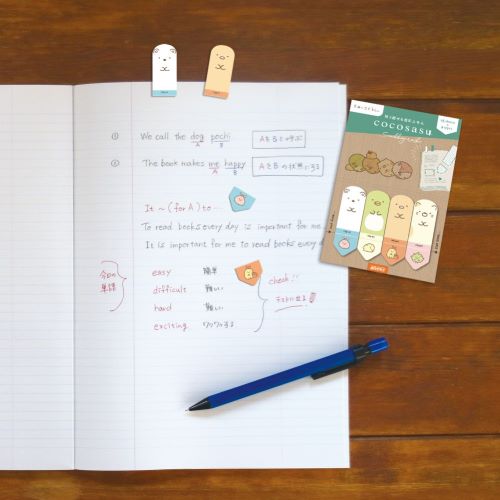 ① We call the dog pochi.
A B
AをBと呼ぶ
② The book makes me happy
A B
AをBの状態にする
It ~ (for A) to ...
To read books every day is important for me
It is important for me to read books every d
今日の単語
easy 簡単
difficult 難しい
hard 難しい
exciting ワクワクする
check!!
テストに出る
cocosasu